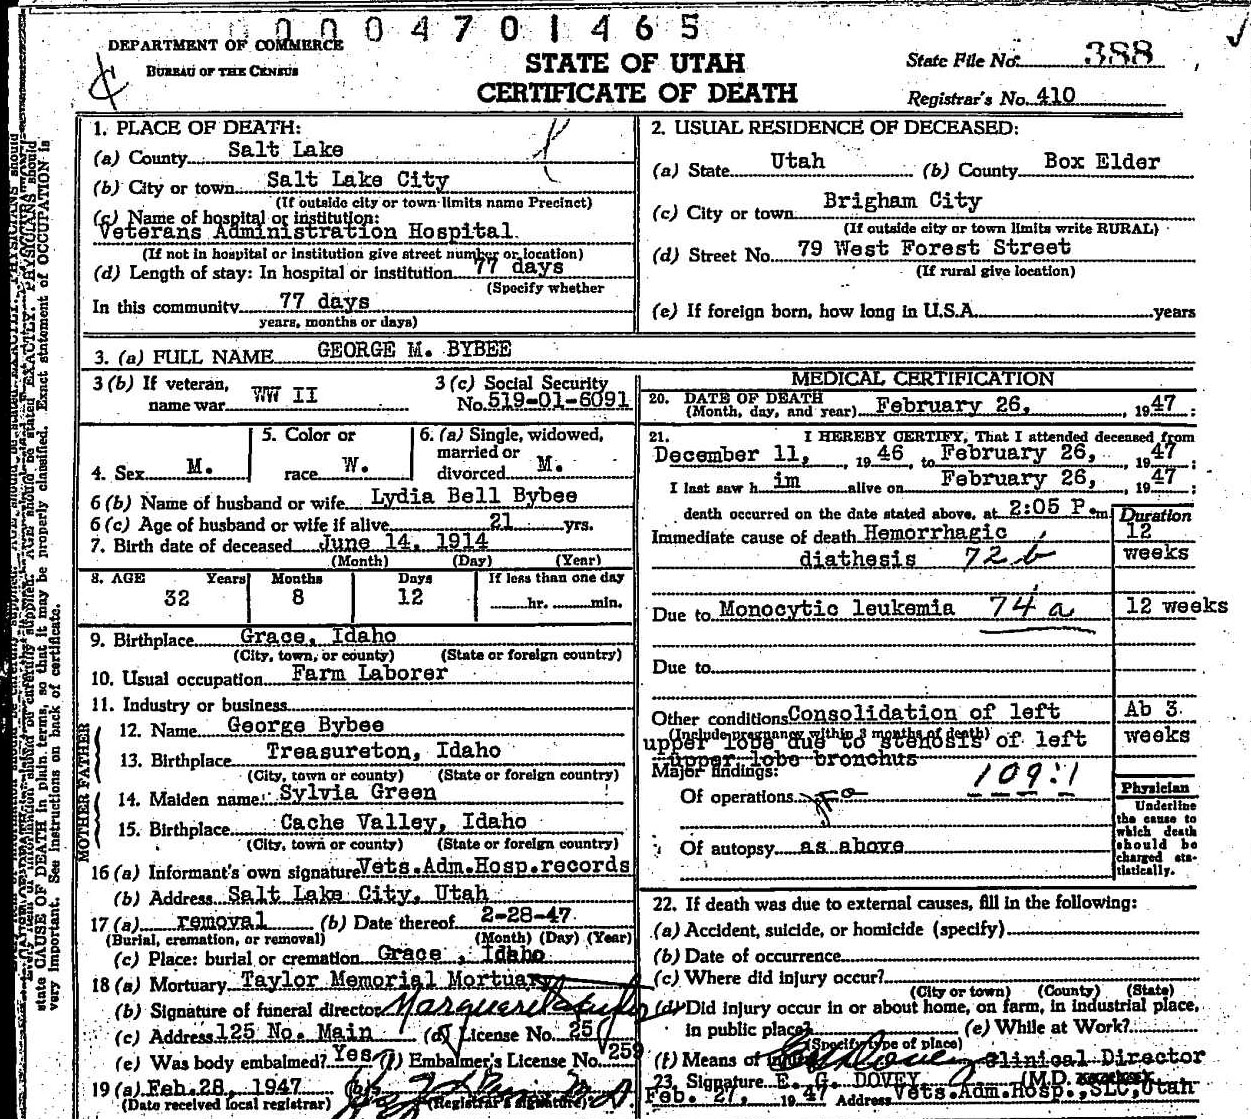 0004701465
DEPARTMENT OF COMMERCE
BUREAU OF THE CENSUS
STATE OF UTAH
CERTIFICATE OF DEATH
State File No. 388
Registrar's No. 410
1. PLACE OF DEATH:
(a) County Salt Lake
(b) City or town Salt Lake City
(If outside city or town limits name Precinct)
(c) Name of hospital or institution:
Veterans Administration Hospital
(If not in hospital or institution give street number or location)
(d) Length of stay: In hospital or institution 77 days
(Specify whether
In this community 77 days
years, months or days)
2. USUAL RESIDENCE OF DECEASED:
(a) State Utah (b) County Box Elder
(c) City or town Brigham City
(If outside city or town limits write RURAL)
(d) Street No. 79 West Forest Street
(If rural give location)
(e) If foreign born, how long in U.S.A. years
3. (a) FULL NAME GEORGE M. BYBEE
3 (b) If veteran, name war WW II
3 (c) Social Security No. 519-01-6091
4. Sex M.
5. Color or race W.
6. (a) Single, widowed, married or divorced M.
6 (b) Name of husband or wife Lydia Bell Bybee
6 (c) Age of husband or wife if alive 21 yrs.
7. Birth date of deceased June 14, 1914
(Month) (Day) (Year)
8. AGE Years Months Days If less than one day
32 8 12 hr. min.
9. Birthplace Grace, Idaho
(City, town, or county) (State or foreign country)
10. Usual occupation Farm Laborer
11. Industry or business
FATHER
12. Name George Bybee
13. Birthplace Treasureton, Idaho
(City, town or county) (State or foreign country)
MOTHER
14. Maiden name Sylvia Green
15. Birthplace Cache Valley, Idaho
(City, town or county) (State or foreign country)
16 (a) Informant's own signature Vets.Adm.Hosp.records
(b) Address Salt Lake City, Utah
17 (a) removal (b) Date thereof 2-28-47
(Burial, cremation, or removal) (Month) (Day) (Year)
(c) Place: burial or cremation Grace, Idaho
18 (a) Mortuary Taylor Memorial Mortuary
(b) Signature of funeral director Marguerite Taylor
(c) Address 125 No. Main (d) License No. 25
(e) Was body embalmed? Yes (f) Embalmer's License No. 259
19 (a) Feb. 28, 1947 (b)
(Date received local registrar) (Registrar's signature)
MEDICAL CERTIFICATION
20. DATE OF DEATH
(Month, day, and year) February 26, 1947
21. I HEREBY CERTIFY, That I attended deceased from
December 11, 1946, to February 26, 1947;
I last saw him alive on February 26, 1947;
death occurred on the date stated above, at 2:05 P.m
Duration
Immediate cause of death Hemorrhagic 12
diathesis 72b weeks
Due to Monocytic leukemia 74a 12 weeks
Due to
Other conditions Consolidation of left Ab 3
(Include pregnancy within 3 months of death)
upper lobe due to stenosis of left weeks
upper lobe bronchus
Major findings: 109:1
Of operations
Of autopsy as above
Physician
Underline
the cause to
which death
should be
charged sta-
tistically.
22. If death was due to external causes, fill in the following:
(a) Accident, suicide, or homicide (specify)
(b) Date of occurrence
(c) Where did injury occur?
(City or town) (County) (State)
(d) Did injury occur in or about home, on farm, in industrial place,
in public place? (e) While at Work?
(Specify type of place)
(f) Means of injury Clinical Director
23. Signature E. G. DOVEY (M.D.
Feb. 27, 1947 Address Vets.Adm.Hosp.,SLC,Utah
state CAUSE OF DEATH in plain terms, so that it may be properly classified. Exact statement of OCCUPATION is
very important. See instructions on back of certificate.